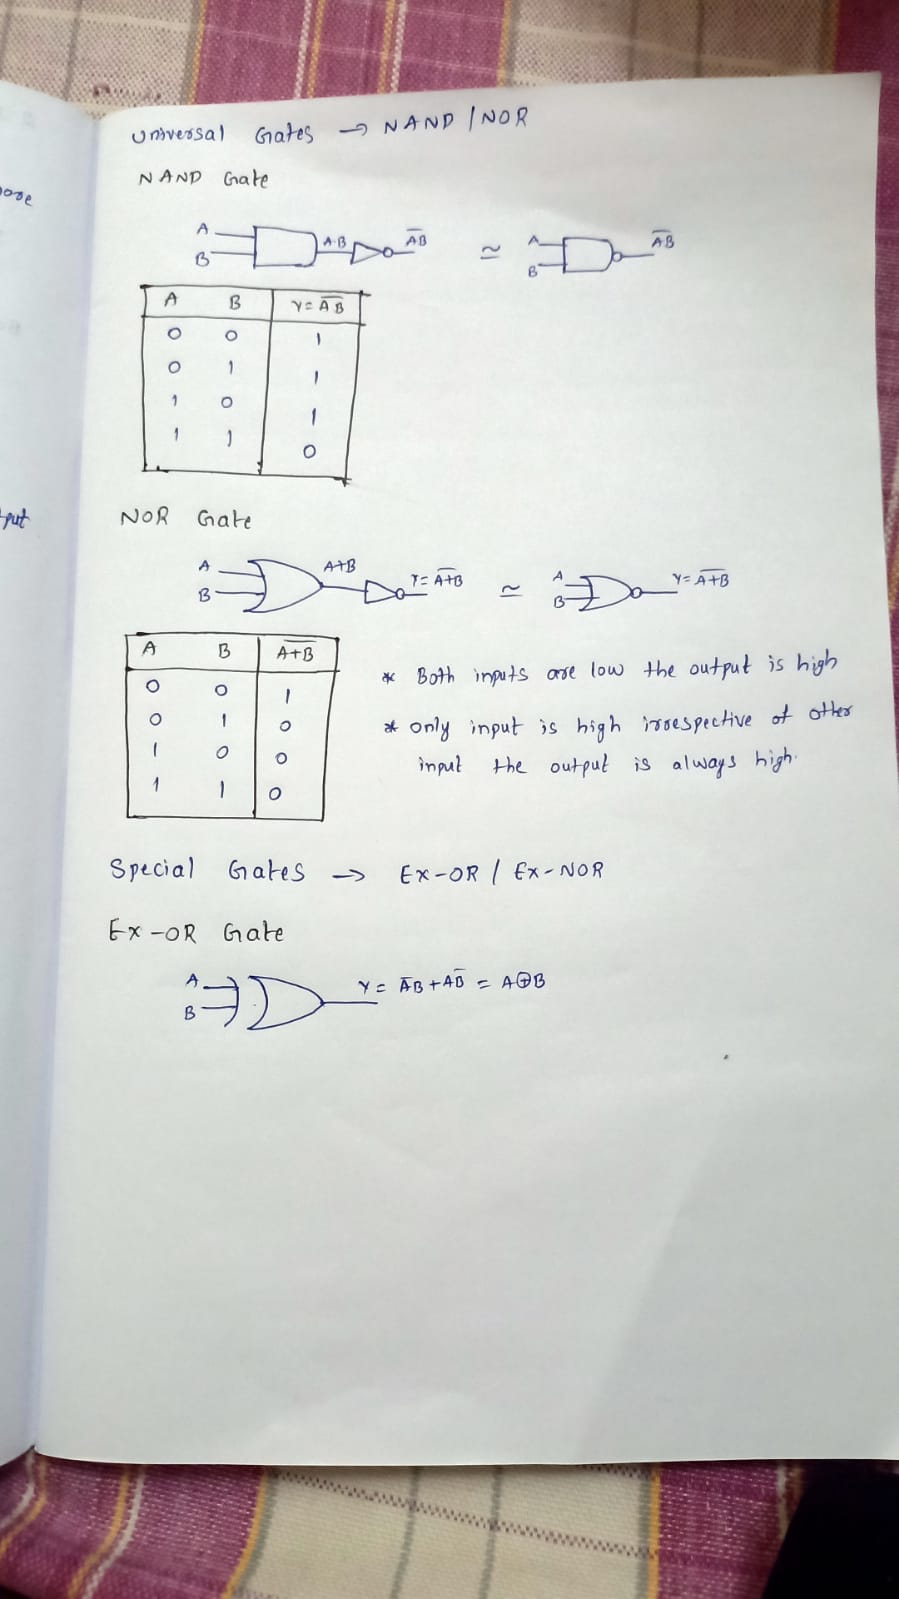 Universal Gates → NAND / NOR
NAND Gate
A
B
A·B
A̅B̅
≃
A
B
A̅B̅
A B Y = A̅B̅
0 0 1
0 1 1
1 0 1
1 1 0
NOR Gate
A
B
A+B
Y = A̅+̅B̅
≃
A
B
Y = A̅+̅B̅
A B A̅+̅B̅
0 0 1
0 1 0
1 0 0
1 1 0
* Both inputs are low the output is high
* only input is high irrespective of other
input the output is always high.
Special Gates → EX-OR / EX-NOR
Ex-OR Gate
A
B
Y = A̅B + AB̅ = A⊕B
put